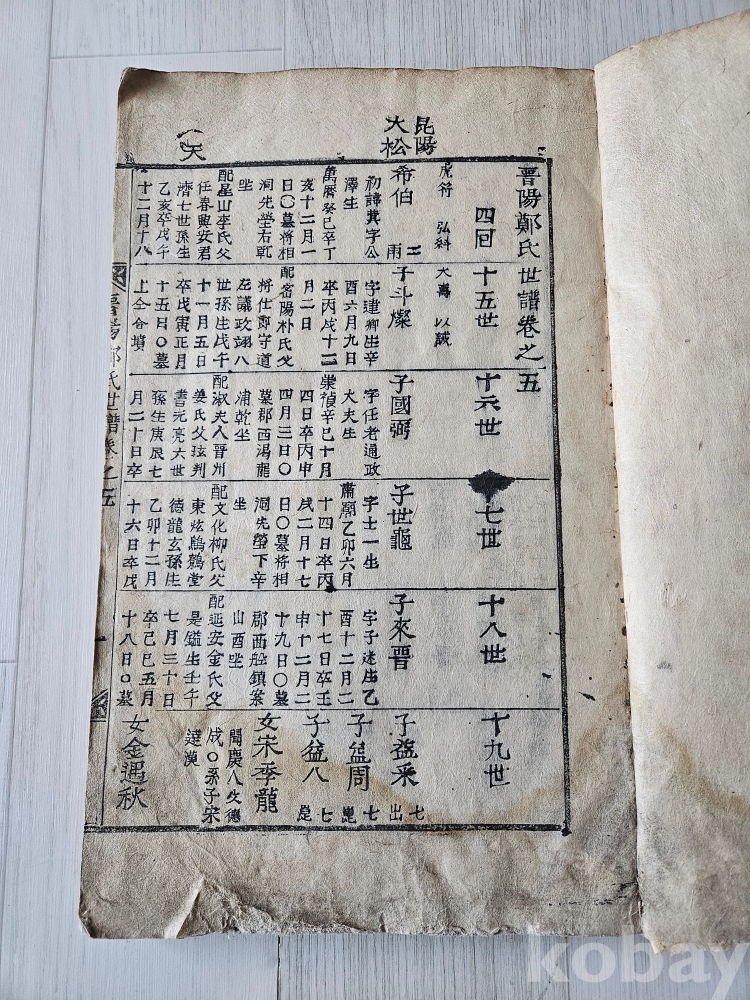 昆陽
大松
天
晋陽鄭氏世譜卷之五
四回
十五世
十六世
七世
十八世
十九世
虎符 弘科
大壽 以誠
希伯
二
雨
初諱㢤字公
澤生
萬曆癸巳卒丁
亥十二月一
日〇墓将相
洞先塋右乾
坐
配星山李氏父
任春興安君
濟七世孫生
乙亥卒戊午
十二月十八
子斗燦
字建卿生辛
酉六月九日
卒丙戌十二
月二日
配密陽朴氏父
将仕郎守道
左議政翊八
世孫生戊午
十一月五日
卒戊寅正月
十五日〇墓
上仝合墳
子國弼
字任老通政
大夫生
崇禎辛巳十月
四日卒丙申
四月三日〇
墓郡西湯龍
浦乾坐
配淑夫人晋州
姜氏父玹判
書元亮六世
孫生庚辰七
月二十日卒
子世龜
字士一生
肅廟乙卯六月
十四日卒丙
戌二月十七
日〇墓将相
洞先塋下辛
坐
配文化柳氏父
東炫鷦鷯堂
德龍玄孫生
乙卯十二月
十六日卒戌
子來晋
字子述生乙
酉十二月二
十七日卒壬
申十二月二
十九日〇墓
郡西船鎮案
山酉坐
配延安金氏父
是鎰生壬午
七月三十日
卒己巳五月
十八日〇墓
子益采
七
出
子益周
七
崑
子益八
七
崑
女宋季龍
聞慶人父德
成〇孫子宋
達漢
女金遇秋
晋陽鄭氏世譜卷之五